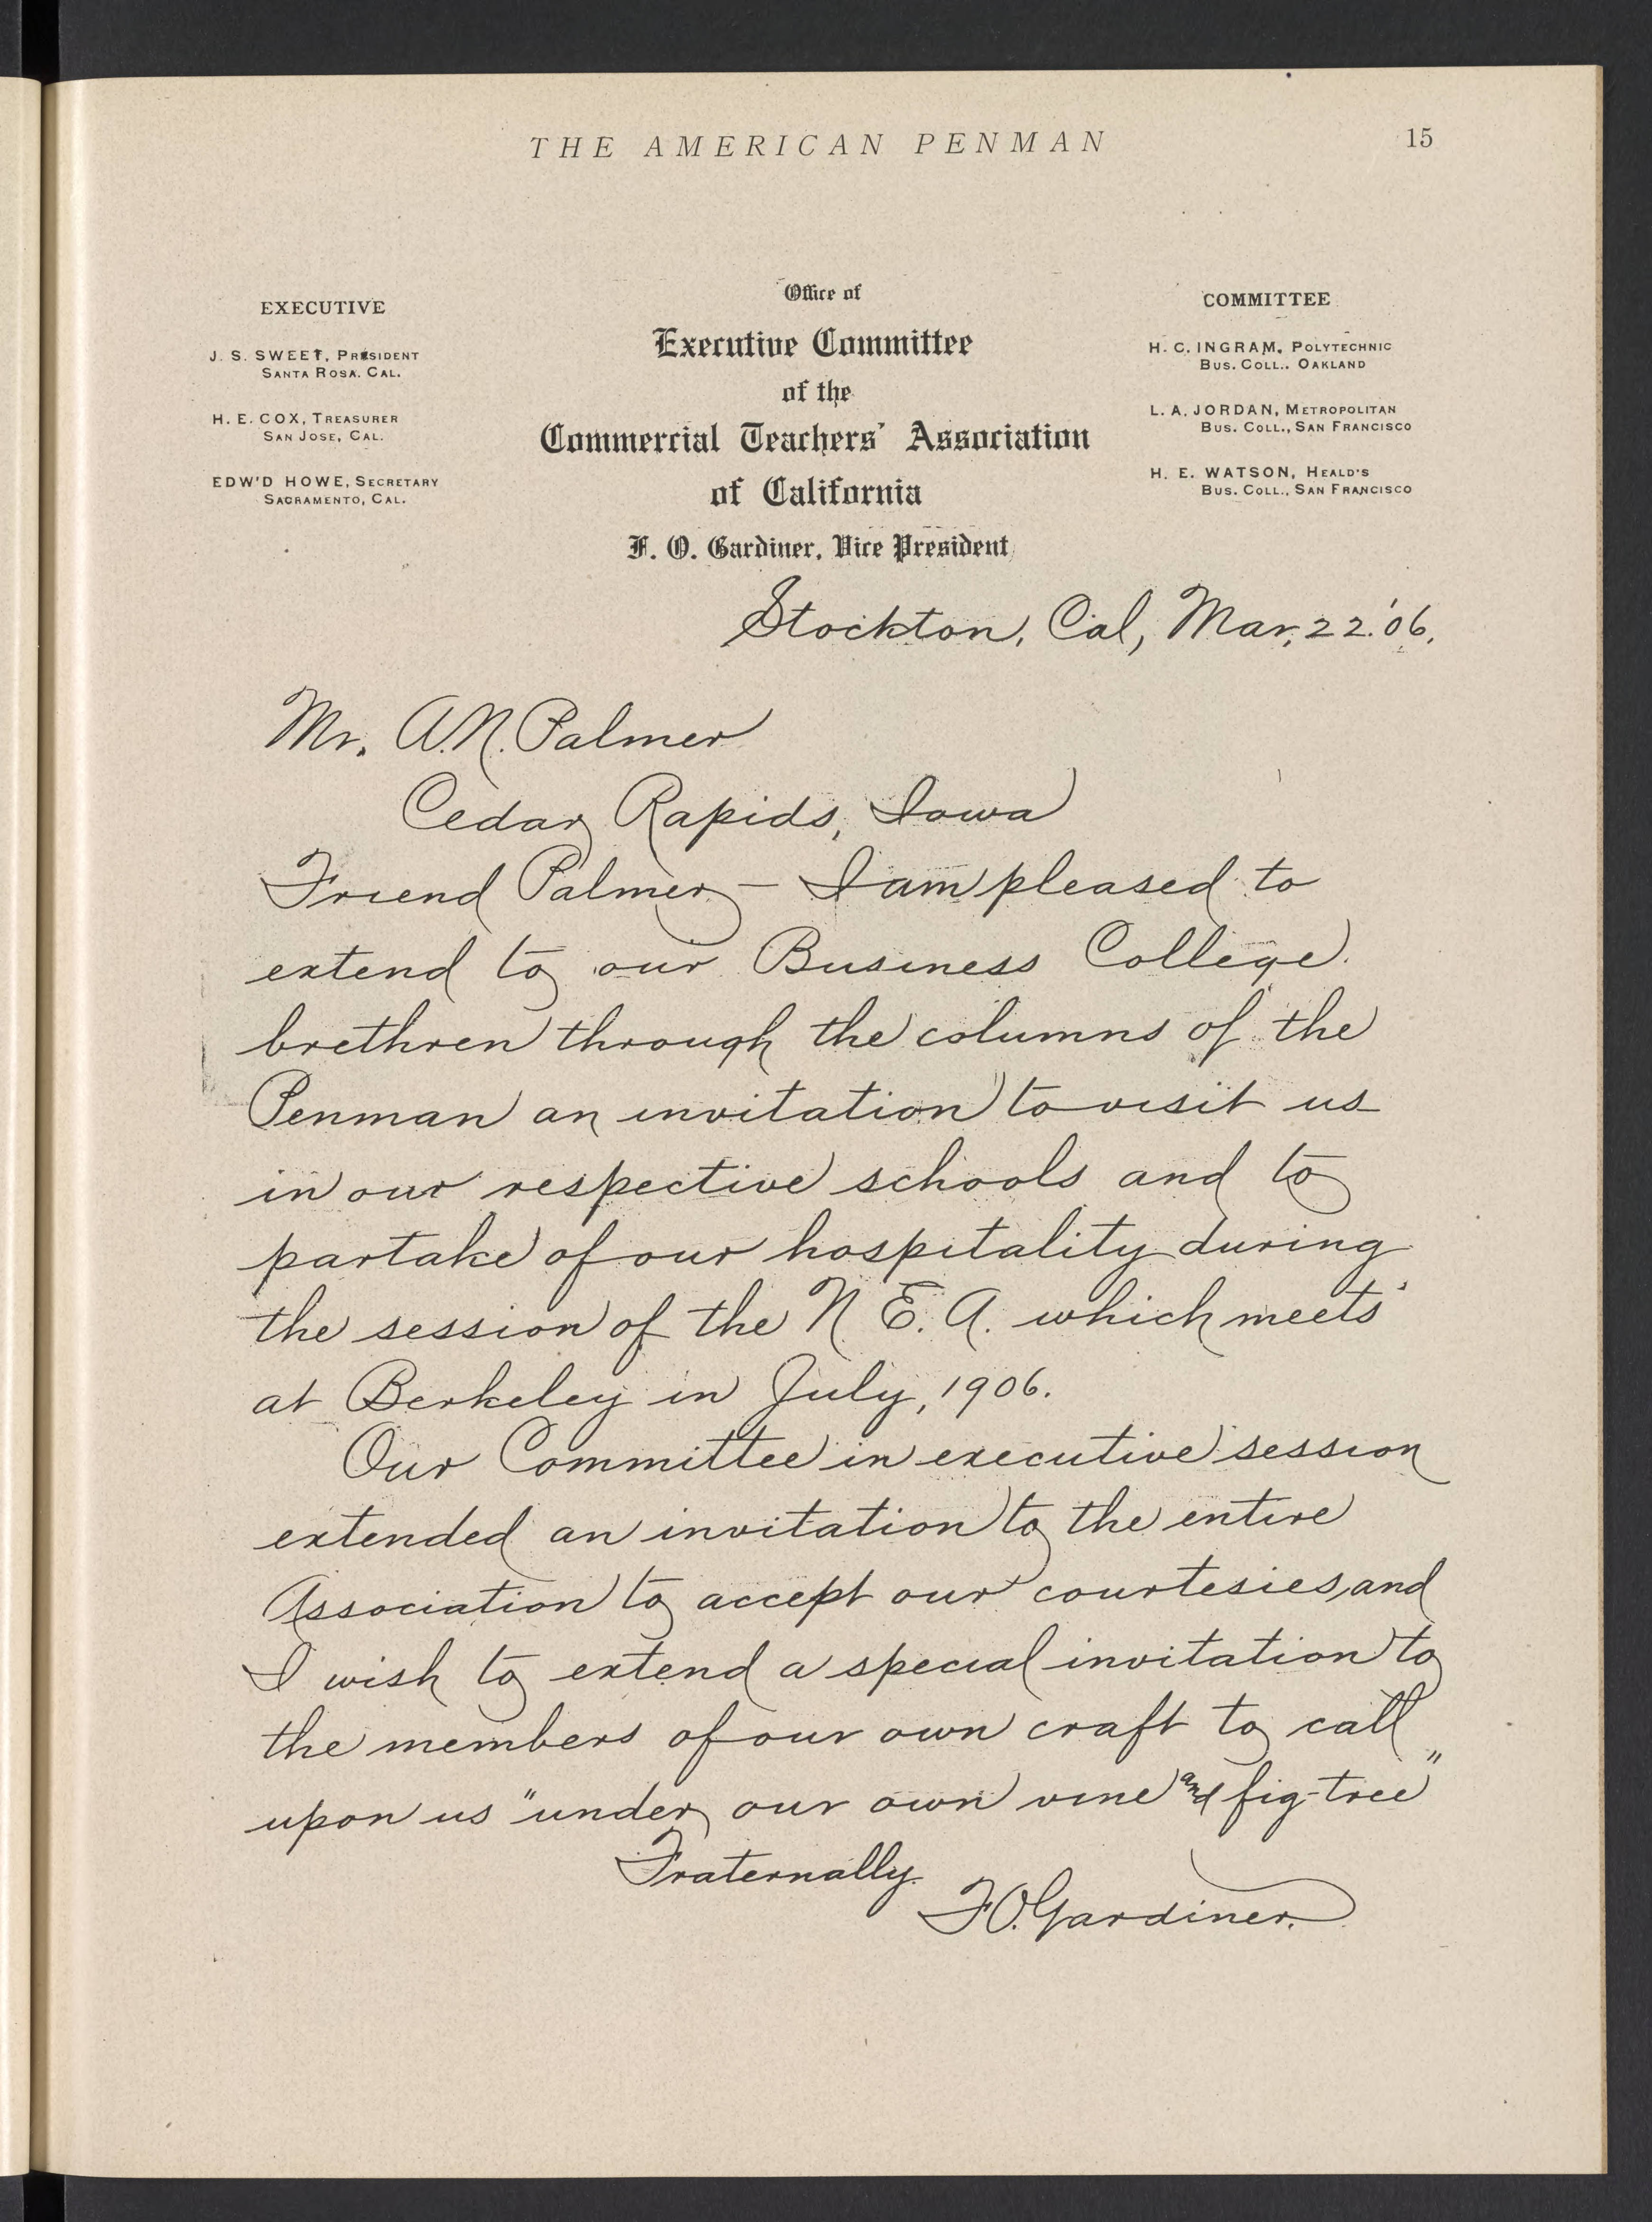 THE AMERICAN PENMAN
15
EXECUTIVE
J. S. SWEET, PRESIDENT
SANTA ROSA. CAL.
H. E. COX, TREASURER
SAN JOSE, CAL.
EDW'D HOWE, SECRETARY
SACRAMENTO, CAL.
Office of
Executive Committee
of the
Commercial Teachers' Association
of California
F. O. Gardiner, Vice President
COMMITTEE
H. C. INGRAM, POLYTECHNIC
BUS. COLL., OAKLAND
L. A. JORDAN, METROPOLITAN
BUS. COLL., SAN FRANCISCO
H. E. WATSON, HEALD'S
BUS. COLL., SAN FRANCISCO
Stockton, Cal, Mar, 22.'06.
Mr. A.N. Palmer
Cedar Rapids, Iowa
Friend Palmer — I am pleased to
extend to our Business College
brethren through the columns of the
Penman an invitation to visit us
in our respective schools and to
partake of our hospitality during
the session of the N. E. A. which meets
at Berkeley in July, 1906.
Our Committee in executive session
extended an invitation to the entire
Association to accept our courtesies, and
I wish to extend a special invitation to
the members of our own craft to call
upon us "under our own vine and fig-tree"
Fraternally.
F.O. Gardiner.